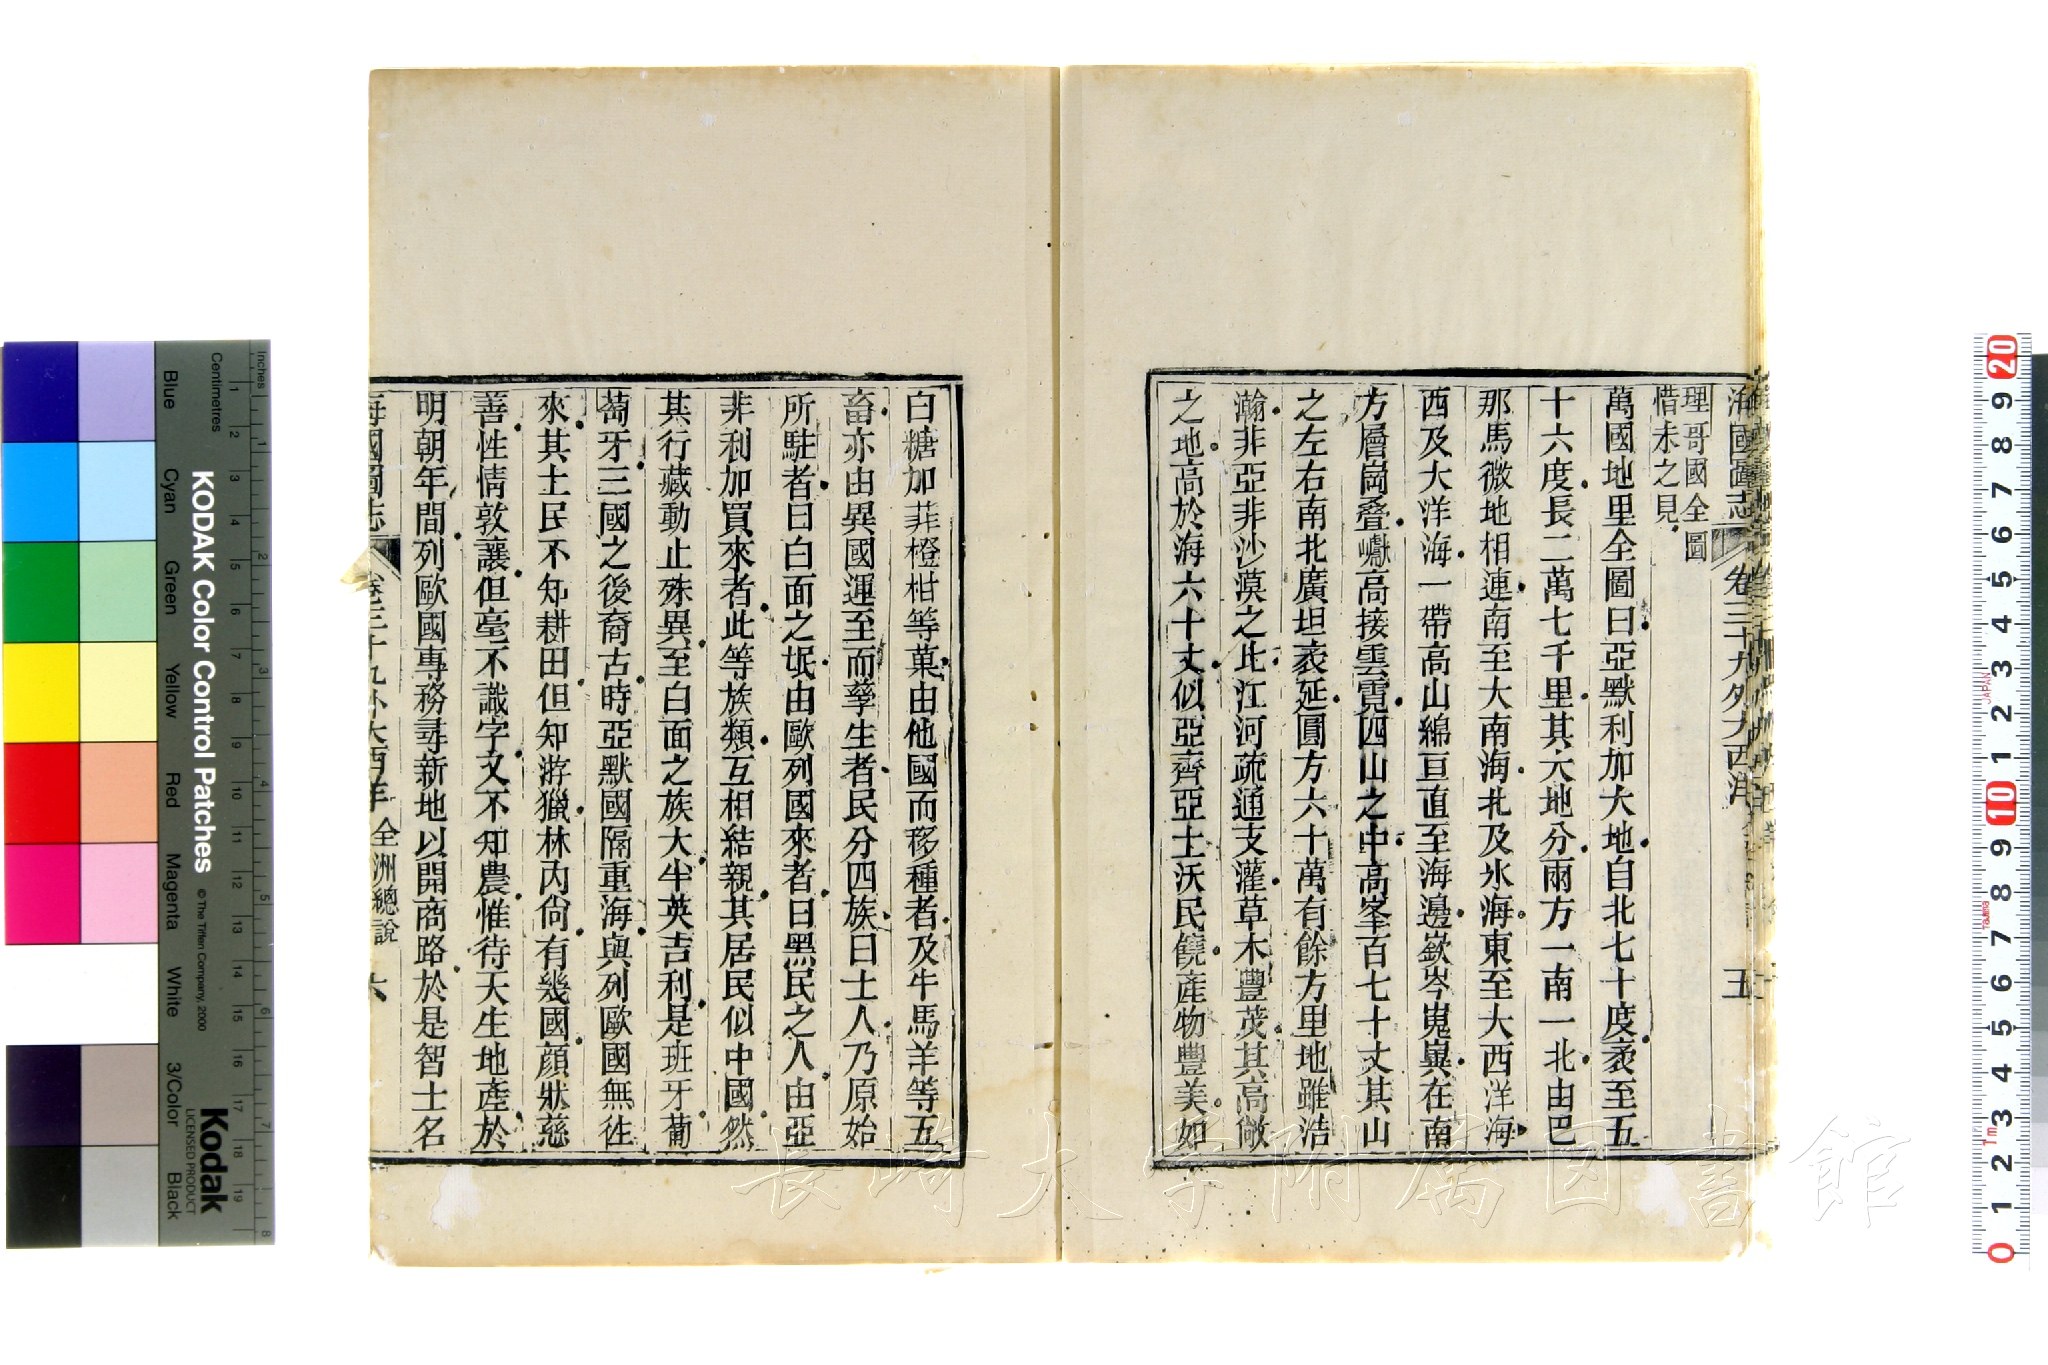 海國圖志
卷三十九外大西洋
五
理哥國全圖
惜未之見
萬國地里全圖曰亞默利加大地自北七十度袤至五
十六度長二萬七千里其大地分兩方一南一北由巴
那馬微地相連南至大南海北及氷海東至大西洋海
西及大洋海一帶高山綿亘直至海邊嶔岑嵬㠔在南
方層崗叠巘高接雲霓四山之中高峯百七十丈其山
之左右南北廣坦袤延圓方六十萬有餘方里地雖浩
瀚非亞非沙漠之比江河疏通支灌草木豐茂其高敞
之地高於海六十丈似亞齊亞土沃民饒產物豐美如
白糖加菲橙柑等菓由他國而移種者及牛馬羊等五
畜亦由異國運至而孳生者民分四族曰士人乃原始
所駐者曰白面之氓由歐列國來者曰黑民之人由亞
非利加買來者此等族類互相結親其居民似中國然
其行藏動止殊異至白面之族大半英吉利是班牙葡
萄牙三國之後裔古時亞默國隔重海與列歐國無徃
來其土民不知耕田但知游獵林內尙有幾國顏狀慈
善性情敦讓但毫不識字又不知農惟待天生地產於
明朝年間列歐國專務尋新地以開商路於是智士名
海國圖志
卷三十九外大西洋 全洲總說
六
Inches
Centimetres
KODAK Color Control Patches
© The Tiffen Company, 2000
Kodak
LICENSED PRODUCT
Blue
Cyan
Green
Yellow
Red
Magenta
White
3/Color
Black
長崎大学附属図書館